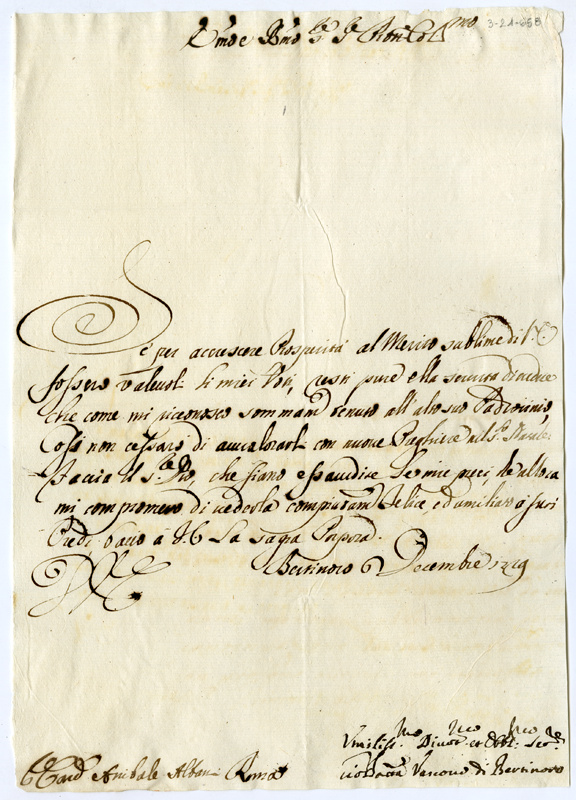 3-21-658
Em̃o e Rm̃o Sig.re Sig.re Pron̄ Col.mo
Se per accrescere Prosperità al Merito sublime di V. E.
fossero valevoli li miei Voti, resti pure ella sicura
che come mi riconosco sommam.te tenuto all'alto suo Padrocinio,
Così non cessarò di avvalorarli con nuove Preghiere nel S.to Natale
Faccia il S.re Dio, che siano essaudite le mie preci, che allora
mi comprometto di vederla compiutam.te felice, ed umiliato a suoi
Piedi, bacio a V. E. la sagra Porpora.
Bertinoro 6 Decembre 1719
Umiliss.mo Divot.mo et Obbl.mo Ser.re
Vescovo di Bertinoro
Card. Anibale Albani Roma